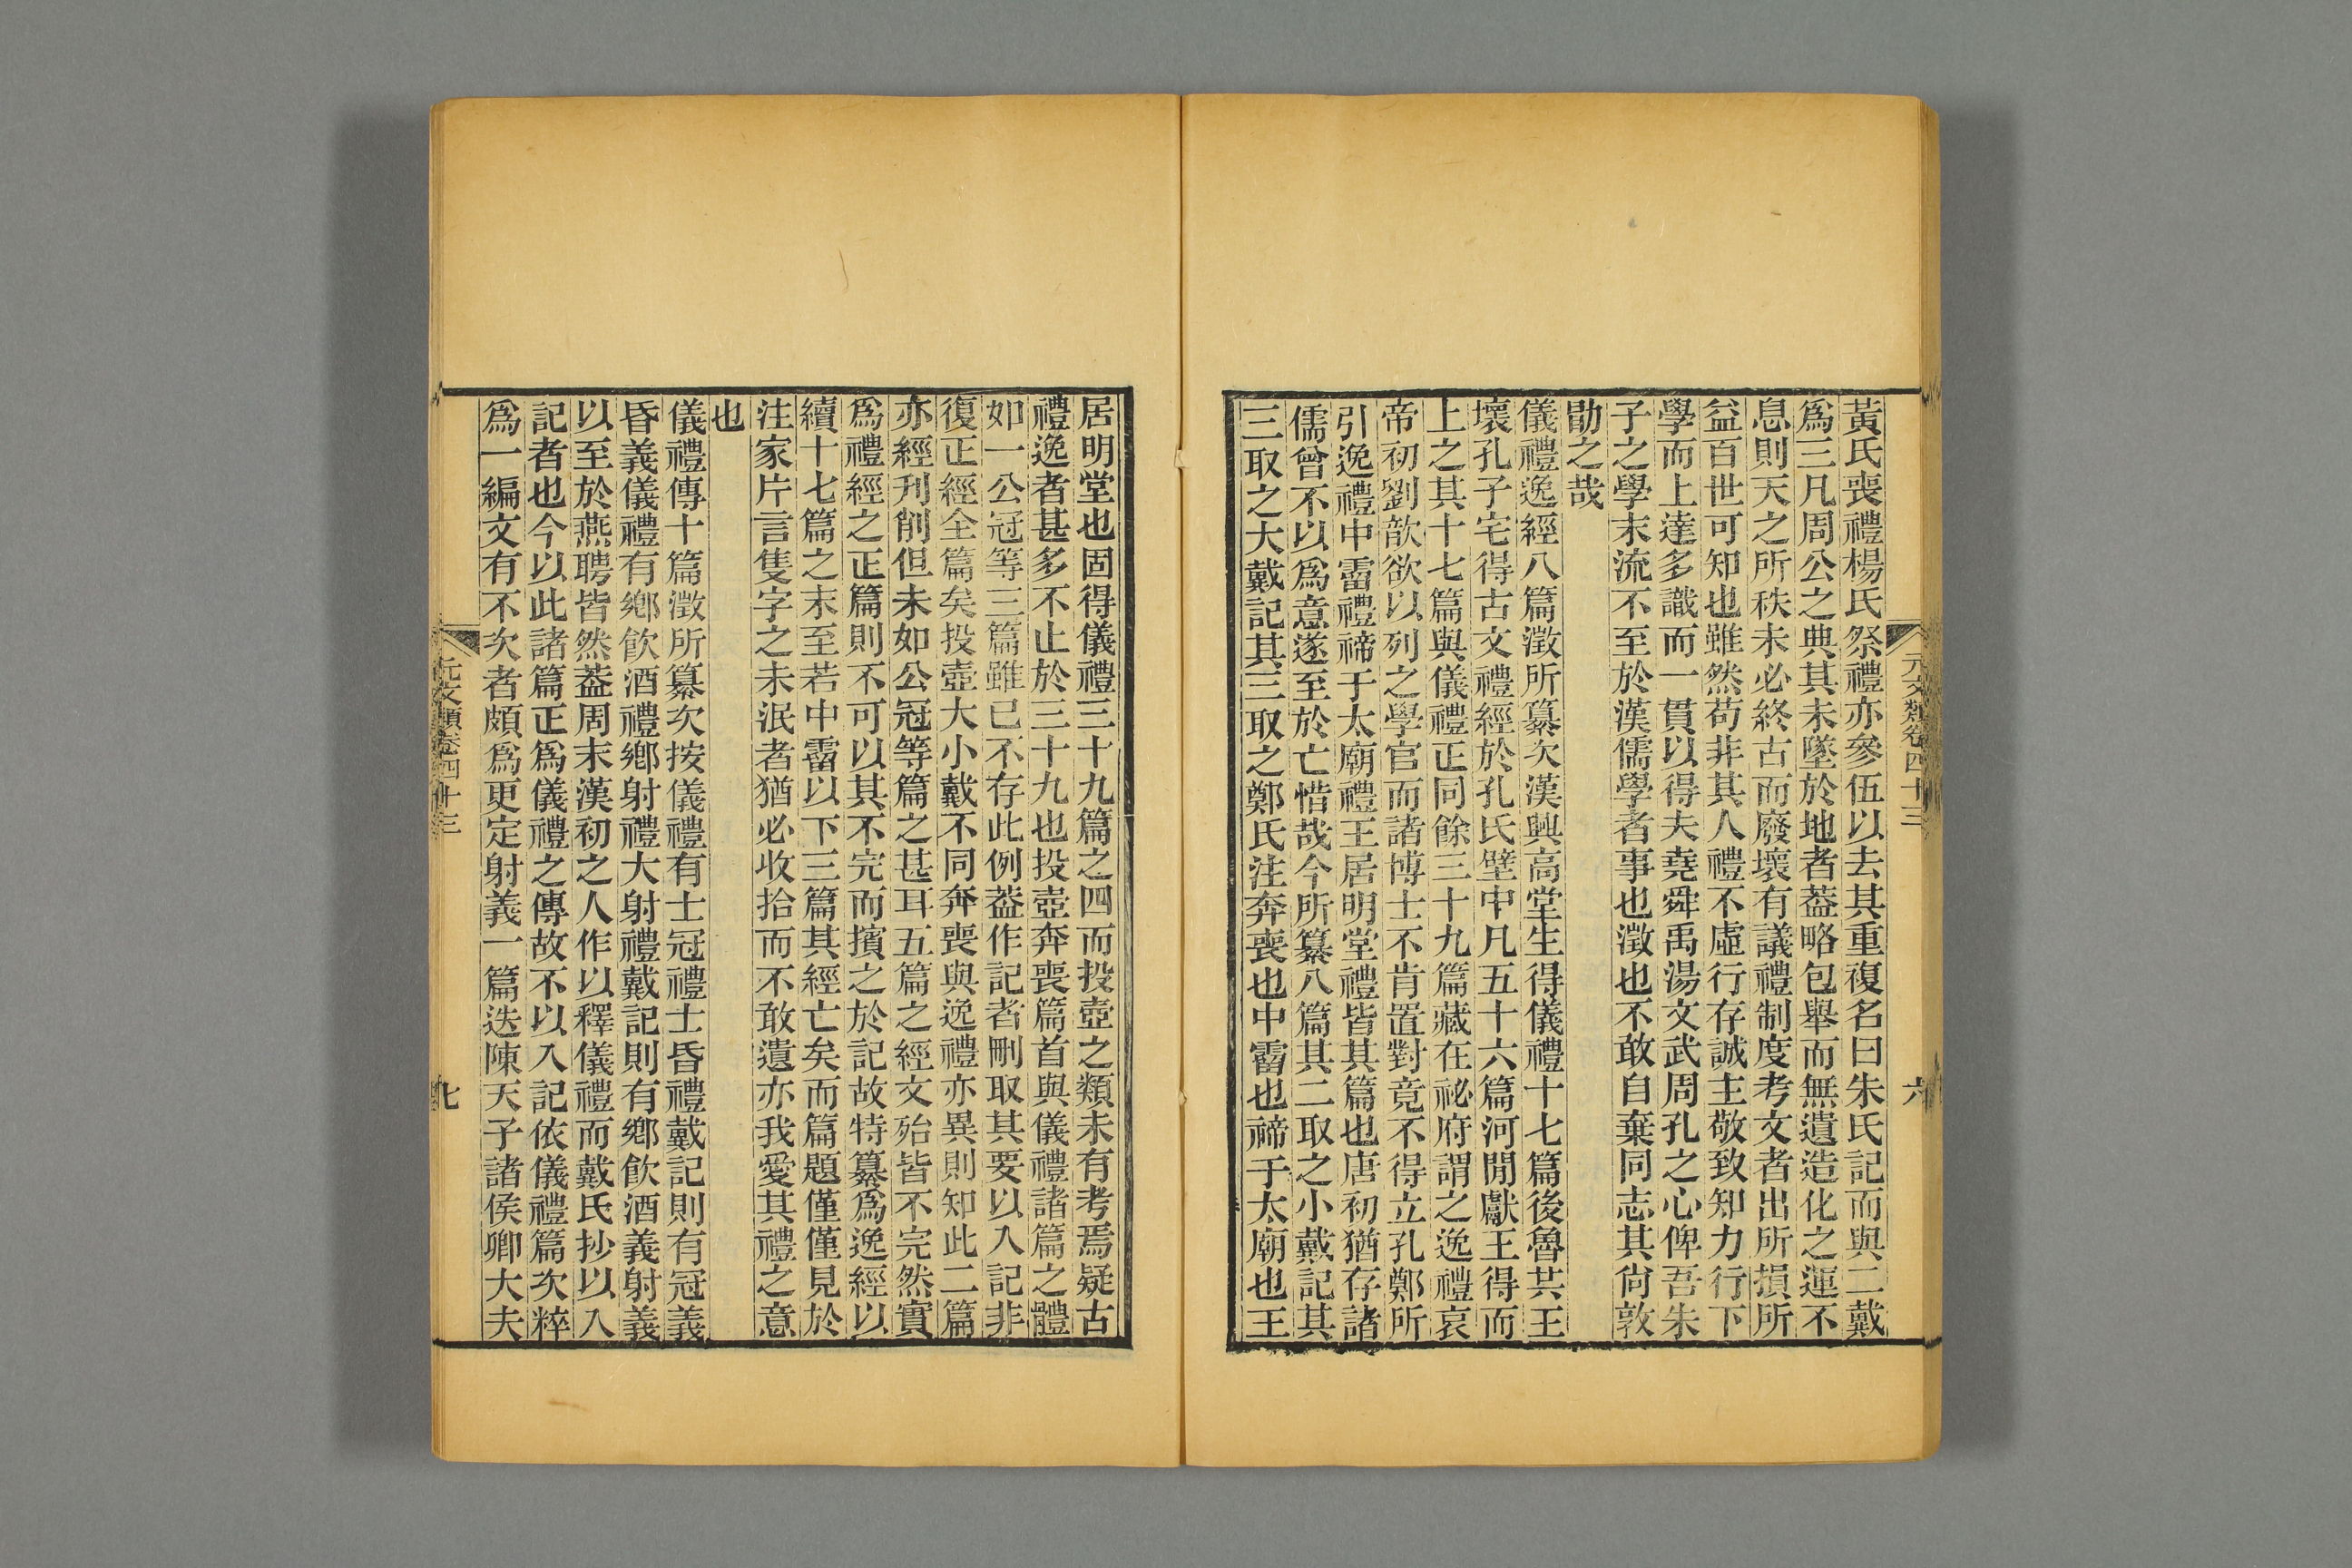 黃氏喪禮楊氏祭禮亦參伍以去其重複名曰朱氏記而與二戴
爲三凡周公之典其未墜於地者葢略包舉而無遺造化之運不
息則天之所秩未必終古而廢壞有議禮制度考文者出所損所
益百世可知也雖然苟非其人禮不虛行存誠主敬致知力行下
學而上達多識而一貫以得夫堯舜禹湯文武周孔之心俾吾朱
子之學末流不至於漢儒學者事也澂也不敢自棄同志其尙敦
勖之哉
儀禮逸經八篇澂所纂次漢興高堂生得儀禮十七篇後魯共王
壞孔子宅得古文禮經於孔氏壁中凡五十六篇河閒獻王得而
上之其十七篇與儀禮正同餘三十九篇藏在祕府謂之逸禮哀
帝初劉歆欲以列之學官而諸博士不肯置對竟不得立孔鄭所
引逸禮中霤禮禘于太廟禮王居明堂禮皆其篇也唐初猶存諸
儒曾不以爲意遂至於亡惜哉今所纂八篇其二取之小戴記其
三取之大戴記其三取之鄭氏注奔喪也中霤也禘于太廟也王
元文類卷四十三
六
居明堂也固得儀禮三十九篇之四而投壺之類未有考焉疑古
禮逸者甚多不止於三十九也投壺奔喪篇首與儀禮諸篇之體
如一公冠等三篇雖已不存此例葢作記者刪取其要以入記非
復正經全篇矣投壺大小戴不同奔喪與逸禮亦異則知此二篇
亦經刋削但未如公冠等篇之甚耳五篇之經文殆皆不完然實
爲禮經之正篇則不可以其不完而擯之於記故特纂爲逸經以
續十七篇之末至若中霤以下三篇其經亡矣而篇題僅僅見於
注家片言隻字之未泯者猶必收拾而不敢遺亦我愛其禮之意
也
儀禮傳十篇澂所纂次按儀禮有士冠禮士昏禮戴記則有冠義
昏義儀禮有鄉飮酒禮鄉射禮大射禮戴記則有鄉飮酒義射義
以至於燕聘皆然葢周末漢初之人作以釋儀禮而戴氏抄以入
記者也今以此諸篇正爲儀禮之傳故不以入記依儀禮篇次粹
爲一編文有不次者頗爲更定射義一篇迭陳天子諸侯卿大夫
元文類卷四十三
七